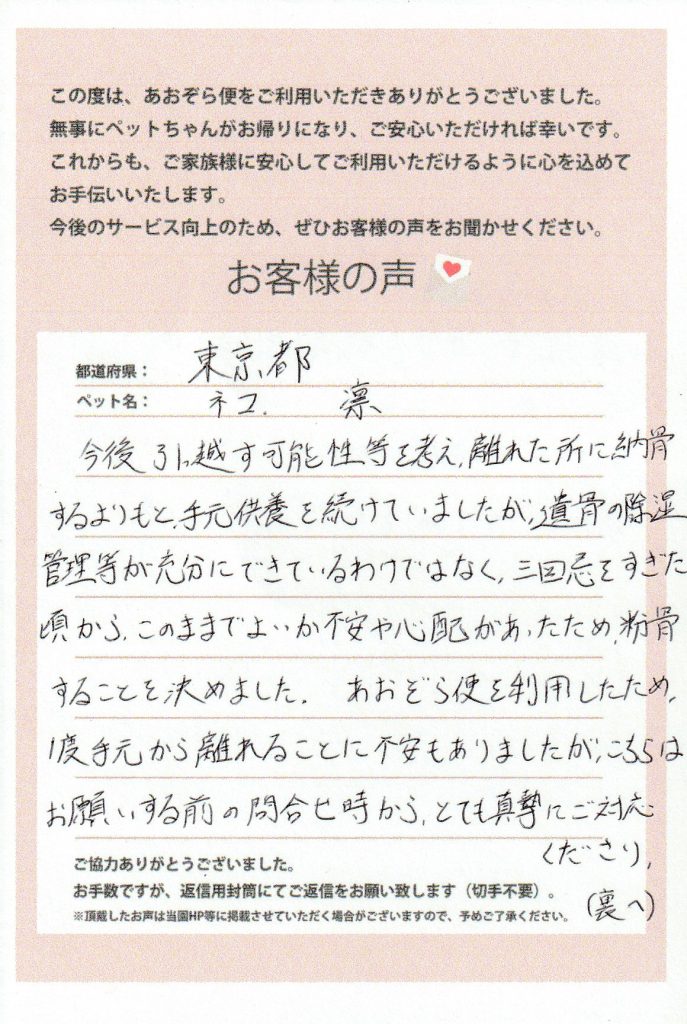 この度は、あおぞら便をご利用いただきありがとうございました。
無事にペットちゃんがお帰りになり、ご安心いただければ幸いです。
これからも、ご家族様に安心してご利用いただけるように心を込めて
お手伝いいたします。
今後のサービス向上のため、ぜひお客様の声をお聞かせください。
お客様の声
都道府県： 東京都
ペット名： ネコ. 凛
今後引っ越す可能性等を考え、離れた所に納骨
するよりもと、手元供養を続けていましたが、遺骨の除湿
管理等が充分にできているわけではなく、三回忌をすぎた
頃から、このままでよいか不安や心配があったため、粉骨
することを決めました. あおぞら便を利用したため、
1度手元から離れることに不安もありましたが、こちらは
お願いする前の問合せ時から、とても真摯にご対応
くださり、
ご協力ありがとうございました。
お手数ですが、返信用封筒にてご返信をお願い致します（切手不要）。
※頂戴したお声は当園HP等に掲載させていただく場合がございますので、予めご了承ください。
(裏へ)